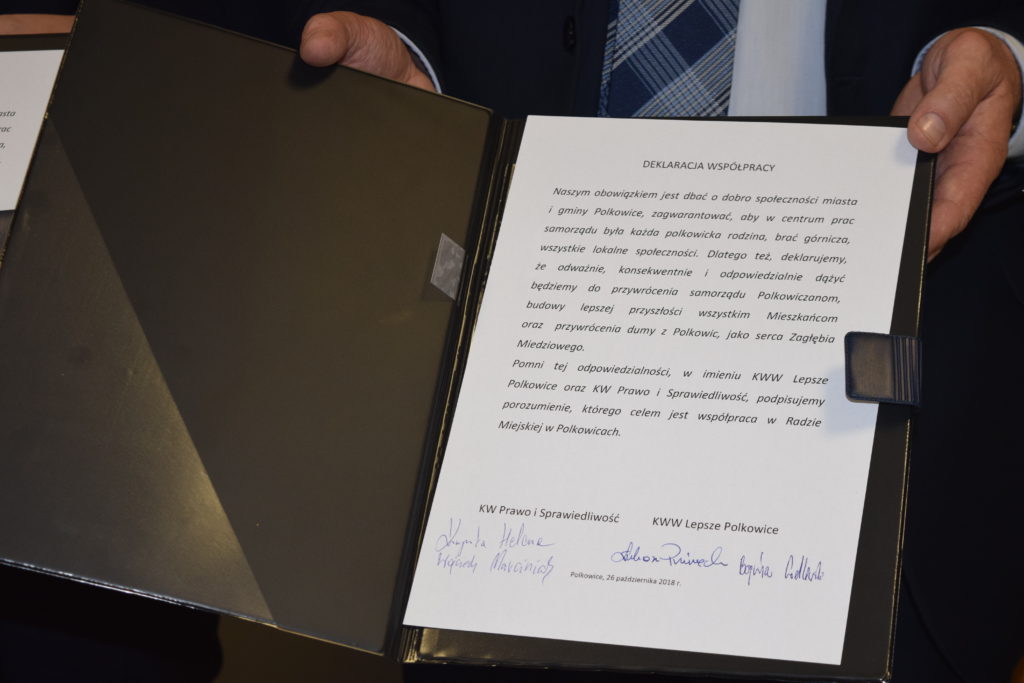 asta
rac
DEKLARACJA WSPÓŁPRACY
Naszym obowiązkiem jest dbać o dobro społeczności miasta
i gminy Polkowice, zagwarantować, aby w centrum prac
samorządu była każda polkowicka rodzina, brać górnicza,
wszystkie lokalne społeczności. Dlatego też, deklarujemy,
że odważnie, konsekwentnie i odpowiedzialnie dążyć
będziemy do przywrócenia samorządu Polkowiczanom,
budowy lepszej przyszłości wszystkim Mieszkańcom
oraz przywrócenia dumy z Polkowic, jako serca Zagłębia
Miedziowego.
Pomni tej odpowiedzialności, w imieniu KWW Lepsze
Polkowice oraz KW Prawo i Sprawiedliwość, podpisujemy
porozumienie, którego celem jest współpraca w Radzie
Miejskiej w Polkowicach.
KW Prawo i Sprawiedliwość KWW Lepsze Polkowice
Helena
Wojciech Marciniak
Polkowice, 26 października 2018 r.